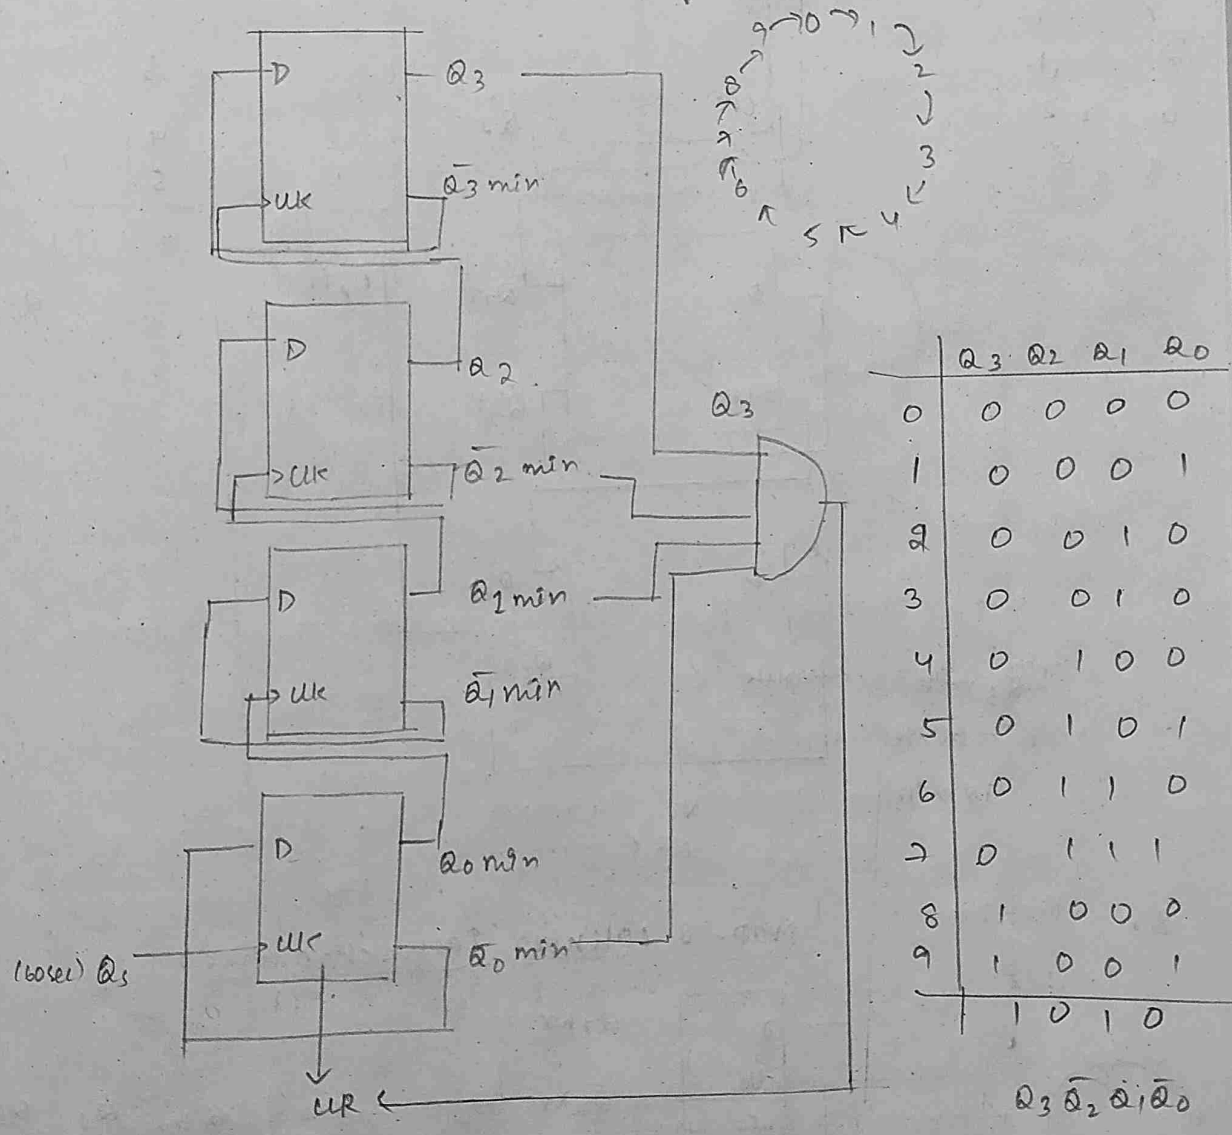 D Q3
Q̄3 min
CLK
D
Q2
CLK Q̄2 min
D Q1 min
CLK Q̄1 min
D
Q0 min
CLK Q̄0 min
(60sec) Qs
CLR
Q3
9 → 0 → 1
2
3
4
5
6
7
8
Q3 Q2 Q1 Q0
0 0 0 0 0
1 0 0 0 1
2 0 0 1 0
3 0 0 1 0
4 0 1 0 0
5 0 1 0 1
6 0 1 1 0
7 0 1 1 1
8 1 0 0 0
9 1 0 0 1
1 0 1 0
Q3 Q̄2 Q1 Q̄0